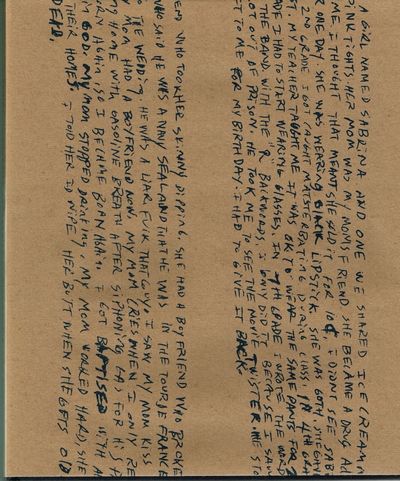 A GIRL NAMED SABRINA AND ONE WE SHARED ICE CREAM
PINK TIGHTS. HER MOM WAS MY MOM'S FRIEND SHE BECAME A DRUG AD
ME. I THOUGHT THAT MEANT SHE SOLD IT FOR 10¢ I DIDN'T SEE SAB
R ONE DAY SHE WAS WEARING BLACK LIPSTICK SHE WAS GOTH. SHE GAVE
2ND GRADE I GOT CAUGHT MASTERBATING DURING CLASS. IN 4TH GRA
ST. MY TEACHER TAUGHT ME IT WAS OK TO WEAR THE SAME PANTS FOR 2
ADE I HAD TO START WEARING GLASSES. IN 7TH GRADE I WROTE THE WORD
THE BAND. WITH THE "R" BACKWARDS. I ONLY DID IT BECAUSE I SAW
OT OUT OF PRISON HE TOOK ME TO SEE THE MOVIE TWISTER. HE STO
ET TO ME FOR MY BIRTHDAY. I HAD TO GIVE IT BACK
END WHO TOOK HER SKINNY DIPPING. SHE HAD A BOYFRIEND WHO BROKE
WHO SAID HE WAS A NAVY SEAL AND THAT HE WAS IN THE TOUR DE FRANCE
THE WEDDING. HE WAS A LIAR. FUCK THAT GUY. I SAW MY MOM KISS
MOM HAD A BOYFRIEND NOW. MY MOM CRIES WHEN I ONLY RE
HOME WITH GASOLINE BREATH AFTER SIPHONING GAS FOR HIS
AGAIN, SO I BECAME BORN AGAIN. I GOT BAPTISED WITH
GOD. MY MOM STOPPED DRINKING. MY MOM WORKED HARD, SHE
THEIR HOMES I TOLD HER ID WIPE HER BUTT WHEN SHE GETS OLD
DEAD.